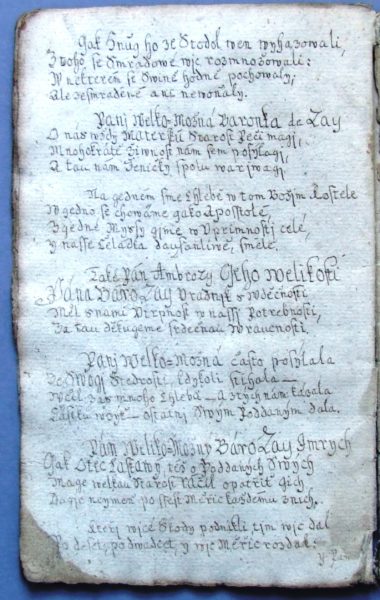 Gak Hnůg ho ze Stodol wen wyhazowali,
Z toho se Smradowe wic rozmnožowali:
W neřeň se Swine hodne pochowaly,
Ale zesmradené ani newoňaly.
Pani Welko-Možna Baronka de Zay
O nás wždy Materskú Starost Peči magj,
Mnohokráte Žiwnost nám sem posylagj,
A tau nám Ženičky spolu warjwagj
Na gedném sme Chlebě w tom Božjm Kostele
W gedno se chowáme gako Aposstolé,
Z gedné Mysly gsme w Uprimnosti celé,
y nasse Čeladka dauffanliwé, smělé.
Také Pán Ambrozy Geho Welikosti
Pána Báro Zay Uradnjk s wděčnosti
Měl s nami Ů w nassj Potrebnosti,
Za tau děkugeme srdečnau Wraucnosti,
Pani Welko-Možná často posylala
Ze Swogj Sčedrosti, kdykoli
Weil Zas mnoho Chleba — A z tych nám kázala
Částku wzyt — ostatnj Swým Poddaným dala.
Pán Weliko-Možny Báro Zay Imrych
Gak Otec Laskawy, též o Poddaných Swých
Mage welkau Starost ráčil opatřit gich
Dagic neymeň po ssest Měřic každému z nich.
Kteri wice Sskody podnikli tim wic dal
Po deset, po dwadcet y wic Měřic rozdal:
y Pán